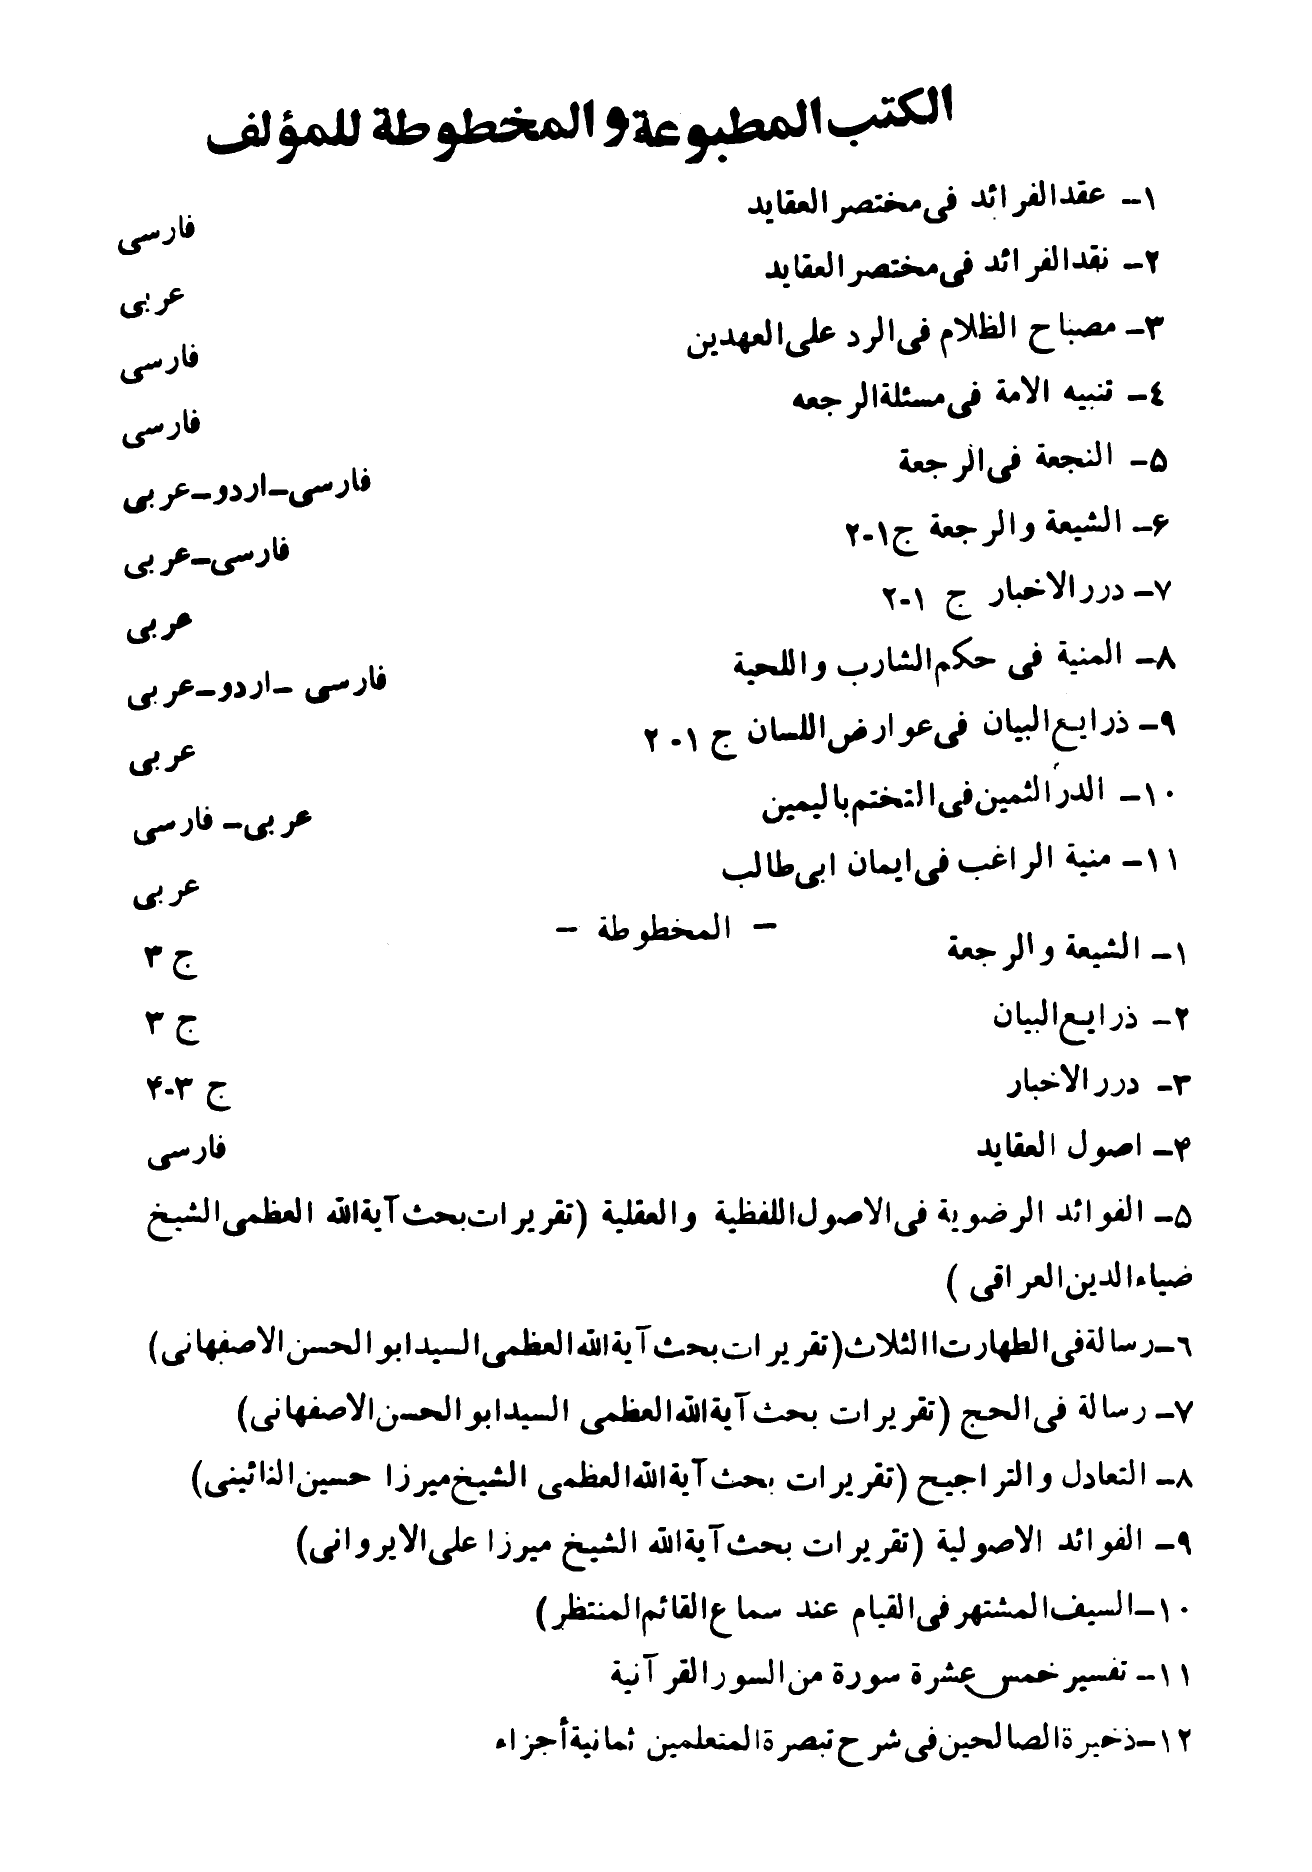 الكتب المطبوعة والمخطوطة للمؤلف
۱- عقد الفرائد فى مختصر العقايد فارسى
۲- نقد الفرائد فى مختصر العقايد عربى
۳- مصباح الظلام فى الرد على العهدين فارسى
٤- تنبيه الامة فى مسئلة الرجعه فارسى
۵- النجعة فى الرجعة فارسى-اردو-عربى
۶- الشيعة والرجعة ج۱-۲ فارسى-عربى
۷- درر الاخبار ج ۱-۲ عربى
۸- المنية فى حكم الشارب واللحية فارسى -اردو-عربى
۹- ذرايع البيان فى عوارض اللسان ج ۱-۲ عربى
۱۰- الدر الثمين فى التختم باليمين عربى- فارسى
۱۱- منية الراغب فى ايمان ابى طالب عربى
- المخطوطة -
۱- الشيعة والرجعة ج ۳
۲- ذرايع البيان ج ۳
۳- درر الاخبار ج ۳-۴
۴- اصول العقايد فارسى
۵- الفوائد الرضوية فى الاصول اللفظية والعقلية (تقريرات بحث آية الله العظمى الشيخ
ضياء الدين العراقى )
٦- رسالة فى الطهارت الثلاث (تقريرات بحث آية الله العظمى السيد ابو الحسن الاصفهانى)
۷- رسالة فى الحج (تقريرات بحث آية الله العظمى السيد ابو الحسن الاصفهانى)
۸- التعادل والتراجيح (تقريرات بحث آية الله العظمى الشيخ ميرزا حسين النائينى)
۹- الفوائد الاصولية (تقريرات بحث آية الله الشيخ ميرزا على الايروانى)
۱۰- السيف المشتهر فى القيام عند سماع القائم المنتظر)
۱۱- تفسير خمس عشرة سورة من السور القرآنية
۱۲- ذخيرة الصالحين فى شرح تبصرة المتعلمين ثمانية أجزاء